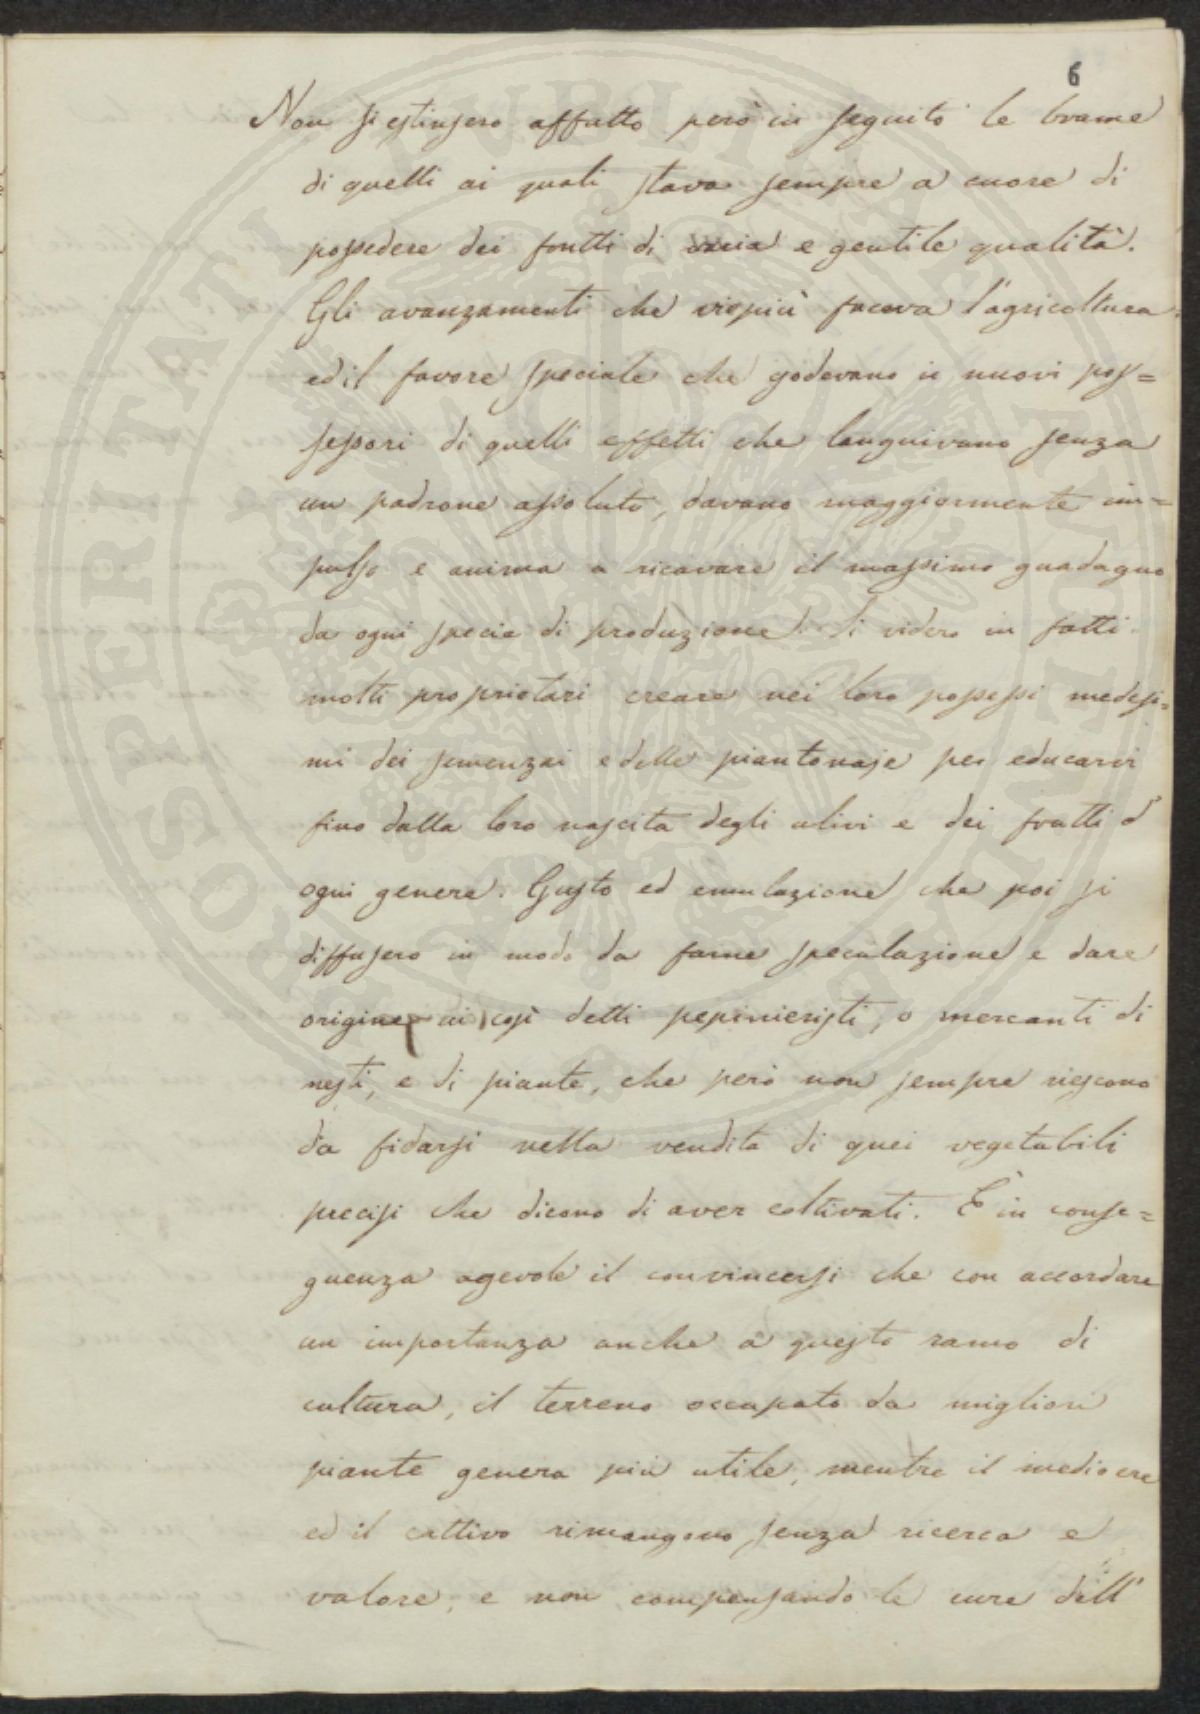 6
Non si estinsero affatto però in seguito le brame
di quelli ai quali stava sempre a cuore di
possedere dei frutti di varia e gentile qualità.
Gli avanzamenti che viepiù faceva l'agricoltura
ed il favore speciale che godevano i nuovi pos=
sessori di quelli effetti che languivano senza
un padrone assoluto, davano maggiormente im=
pulso e anima a ricavare il massimo guadagno
da ogni specie di produzione. Si videro in fatti
molti proprietari creare nei loro possessi medesi=
mi dei semenzai e delle piantonaje per educarvi
fino dalla loro nascita degli ulivi e dei frutti d'
ogni genere. Gusto ed emulazione che poi si
diffusero in modo da farne speculazione e dare
origine ai così detti pepinieristi, o mercanti di
nesti, e di piante, che però non sempre riescono
da fidarsi nella vendita di quei vegetabili
precisi che dicono di aver coltivati. È in conse=
guenza agevole il convincersi che con accordare
un importanza anche a questo ramo di
cultura, il terreno occupato da migliori
piante genera più utile, mentre il mediocre
ed il cattivo rimangono senza ricerca e
valore, e non compensando le cure dell'
PROSPERITATI PUBLICAE AUGENDAE